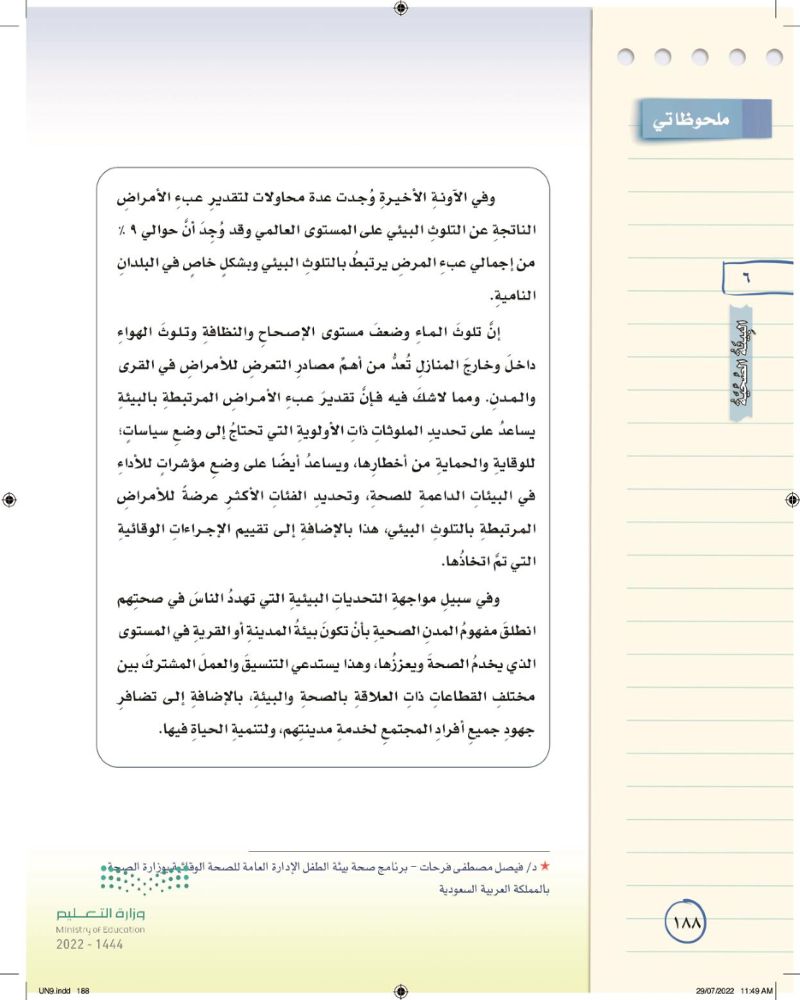 ملحوظاتي
٦
البيئة الصحية
وفي الآونةِ الأخيرةِ وُجدت عدة محاولات لتقديرِ عبءِ الأمراضِ
الناتجةِ عن التلوثِ البيئي على المستوى العالمي وقد وُجِدَ أنَّ حوالي ٩ ٪
من إجمالي عبءِ المرضِ يرتبطُ بالتلوثِ البيئي وبشكلٍ خاصٍ في البلدانِ
الناميةِ.
إنَّ تلوثَ الماءِ وضعفَ مستوى الإصحاحِ والنظافةِ وتلوثَ الهواءِ
داخلَ وخارجَ المنازلِ تُعدُّ من أهمِّ مصادرِ التعرضِ للأمراضِ في القرى
والمدنِ. ومما لاشكَ فيه فإنَّ تقديرَ عبءِ الأمراضِ المرتبطةِ بالبيئةِ
يساعدُ على تحديدِ الملوثاتِ ذاتِ الأولويةِ التي تحتاجُ إلى وضعِ سياساتٍ؛
للوقايةِ والحمايةِ من أخطارِها، ويساعدُ أيضًا على وضعِ مؤشراتٍ للأداءِ
في البيئاتِ الداعمةِ للصحةِ، وتحديدِ الفئاتِ الأكثرِ عرضةً للأمراضِ
المرتبطةِ بالتلوثِ البيئي، هذا بالإضافةِ إلى تقييمِ الإجراءاتِ الوقائيةِ
التي تمَّ اتخاذُها.
وفي سبيلِ مواجهةِ التحدياتِ البيئيةِ التي تهددُ الناسَ في صحتِهم
انطلقَ مفهومُ المدنِ الصحيةِ بأنْ تكونَ بيئةُ المدينةِ أو القريةِ في المستوى
الذي يخدمُ الصحةَ ويعززُها، وهذا يستدعي التنسيقَ والعملَ المشتركَ بين
مختلفِ القطاعاتِ ذاتِ العلاقةِ بالصحةِ والبيئةِ، بالإضافةِ إلى تضافرِ
جهودِ جميعِ أفرادِ المجتمعِ لخدمةِ مدينتِهم، ولتنميةِ الحياةِ فيها.
★ د/ فيصل مصطفى فرحات – برنامج صحة بيئة الطفل الإدارة العامة للصحة الوقائية بوزارة الصحة
بالمملكة العربية السعودية
وزارة التعليم
Ministry of Education
2022 - 1444
١٨٨
UN9.indd 188
29/07/2022 11:49 AM